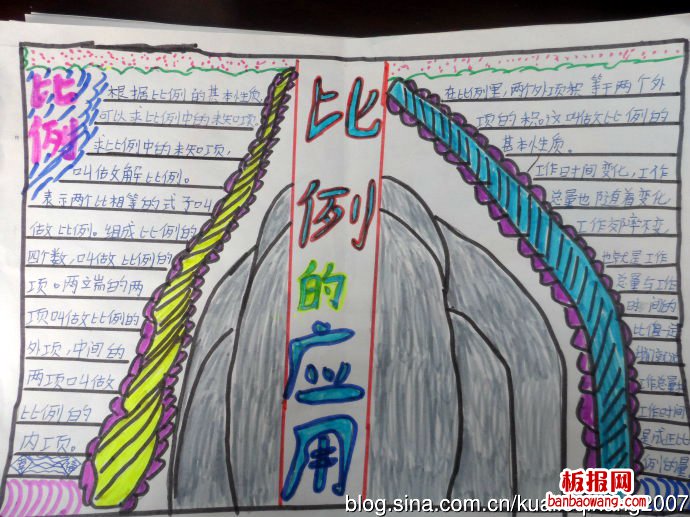 比
例
根据比例的基本性质,
可以求比例中的未知项,
求比例中的未知项,
叫做解比例。
表示两个比相等的式子叫
做比例。组成比例的
四个数,叫做比例的
项。两端的两
项叫做比例的
外项,中间的
两项叫做
比例的
内项。
比
例
的
应
用
在比例里,两个外项积等于两个外
项的积。这叫做比例的
基本性质。
工作时间变化,工作
总量也随着变化
工作效率不变,
也就是工作
总量与工作
时间的
比值一定
我们就说
工作总量与
工作时间
是成正比
例的量
板报网
banbaowang.com
blog.sina.com.cn/kua
2007